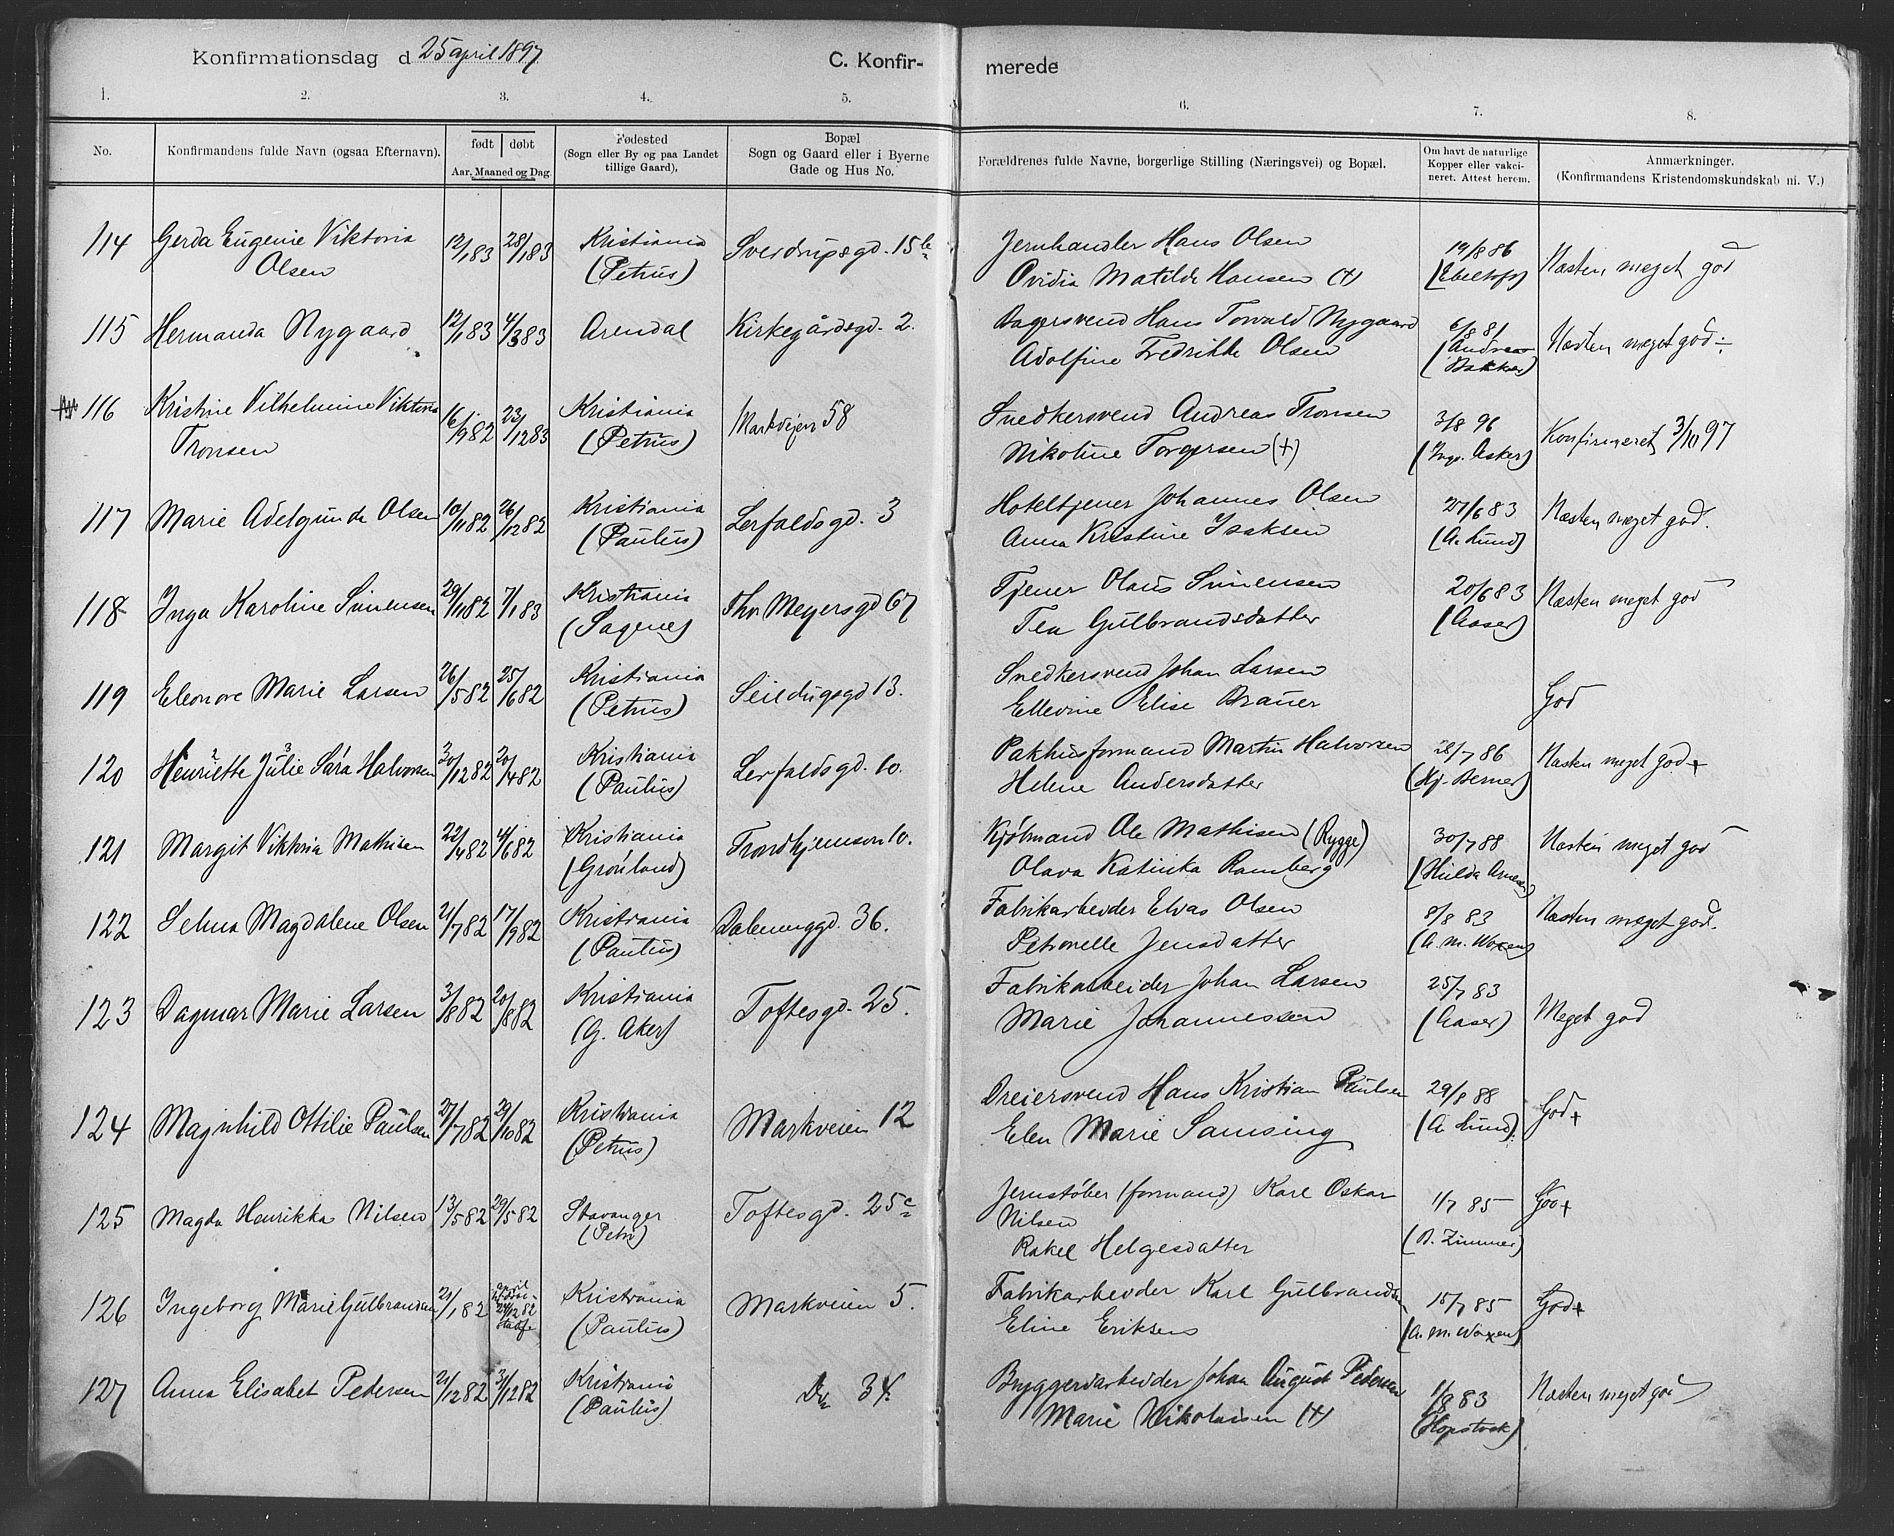 Konfirmationsdag d 25 april 1897
C. Konfirmerede
1. 2. 3. 4. 5. 6. 7. 8.
No.
Konfirmandens fulde Navn (ogsaa Efternavn).
født døbt
Aar, Maaned og Dag.
Fødested
(Sogn eller By og paa Landet
tillige Gaard).
Bopæl
Sogn og Gaard eller i Byerne
Gade og Hus No.
Forældrenes fulde Navne, borgerlige Stilling (Næringsvei) og Bopæl.
Om havt de naturlige
Kopper eller vakci-
neret. Attest herom.
Anmærkninger.
(Konfirmandens Kristendomskundskab ni. V.)
114 Gerda Eugenie Viktoria 12/1 83 28/1 83 Kristiania Sverdrupsgd. 15b Jernhandler Hans Olsen 19/8 86 Næsten meget god
Olsen (Petrus) Ovidia Matilde Hansen (+) (Ebeltoft)
115 Hermanda Nygaard 12/1 83 4/3 83 Arendal Kirkegårdsgd. 2. Bagersvend Hans Torvald Nygaard 6/8 81 Næsten meget god ÷
Adolfine Fredrikke Olsen (Andreas
Bakker)
116 Kristine Vilhelmine Viktoria 16/9 82 23/12 83 Kristiania Markveien 58 Snedkersvend Andreas Tronsen 3/8 96 Konfirmeret 3/10 97
Tronsen (Petrus) Nikoline Torgersen (+) (Asker)
117 Marie Adelgunde Olsen 10/11 82 26/12 82 Kristiania Lerfaldsgd. 3 Hoteltjener Johannes Olsen 27/6 83 Næsten meget god.
(Paulus) Anna Kristine Isaksen (A. Lund)
118 Inga Karoline Simensen 29/11 82 7/1 83 Kristiania Thv Meyersgd 67 Tjener Olaus Simensen 20/6 83 Næsten meget god
(Sagene) Tea Gulbrandsdatter (Aaser)
119 Eleonore Marie Larsen 26/5 82 25/6 82 Kristiania Seildugsgd 13. Snedkersvend Johan Larsen God
(Petrus) Ellevine Elise Brauer
120 Henriette Julie Sara Halvorsen 30/12 82 20/4 82 Kristiania Lerfaldsgd. 10. Pakhusformand Martin Halvorsen 28/7 86 Næsten meget god +
(Paulus) Helene Andersdatter (Hj. Berner)
121 Margit Viktoria Mathisen 22/4 82 4/6 82 Kristiania Trondhjemsvn 10. Kjøbmand Ole Mathisen (Rygge) 30/7 88 Næsten meget god
(Grønland) Olava Katinka Ramberg (Hulda Arnesen)
122 Selma Magdalene Olsen 21/7 82 17/9 82 Kristiania Dalenenggd. 36. Fabrikarbeider Elias Olsen 8/8 83 Næsten meget god.
(Paulus) Petronelle Jensdatter (A. M. Woxen)
123 Dagmar Marie Larsen 3/8 82 20/8 82 Kristiania Toftesgd. 25. Fabrikarbeider Johan Larsen 25/7 83 Meget god
(G. Aker) Marie Johannessen (Aaser)
124 Magnhild Ottilie Paulsen 27/7 82 29/10 82 Kristiania Markveien 12 Dreiersvend Hans Kristian Paulsen 29/8 88 God +
(Petrus) Elen Marie Samsing (A. Lund)
125 Magda Henrikka Nilsen 13/5 82 29/5 82 Stavanger Toftesgd. 25c Jernstøber (formand) Karl Oskar 1/7 85 God +
(Petri) Nilsen
Rakel Helgesdatter (B. Zimmer)
126 Ingeborg Marie Gulbrandsen 21/1 82 24/12 82 Kristiania Markveien 5. Fabrikarbeider Karl Gulbrandsen 15/7 85 God +
(Paulus) Eline Eriksen (A. M. Woxen)
127 Anna Elisabet Pedersen 21/12 82 31/12 82 Kristiania Do 34. Bryggeriarbeider Johan August Pedersen 1/8 83 Næsten meget god
(Paulus) Marie Nikolaisen (+) (Hopstock)